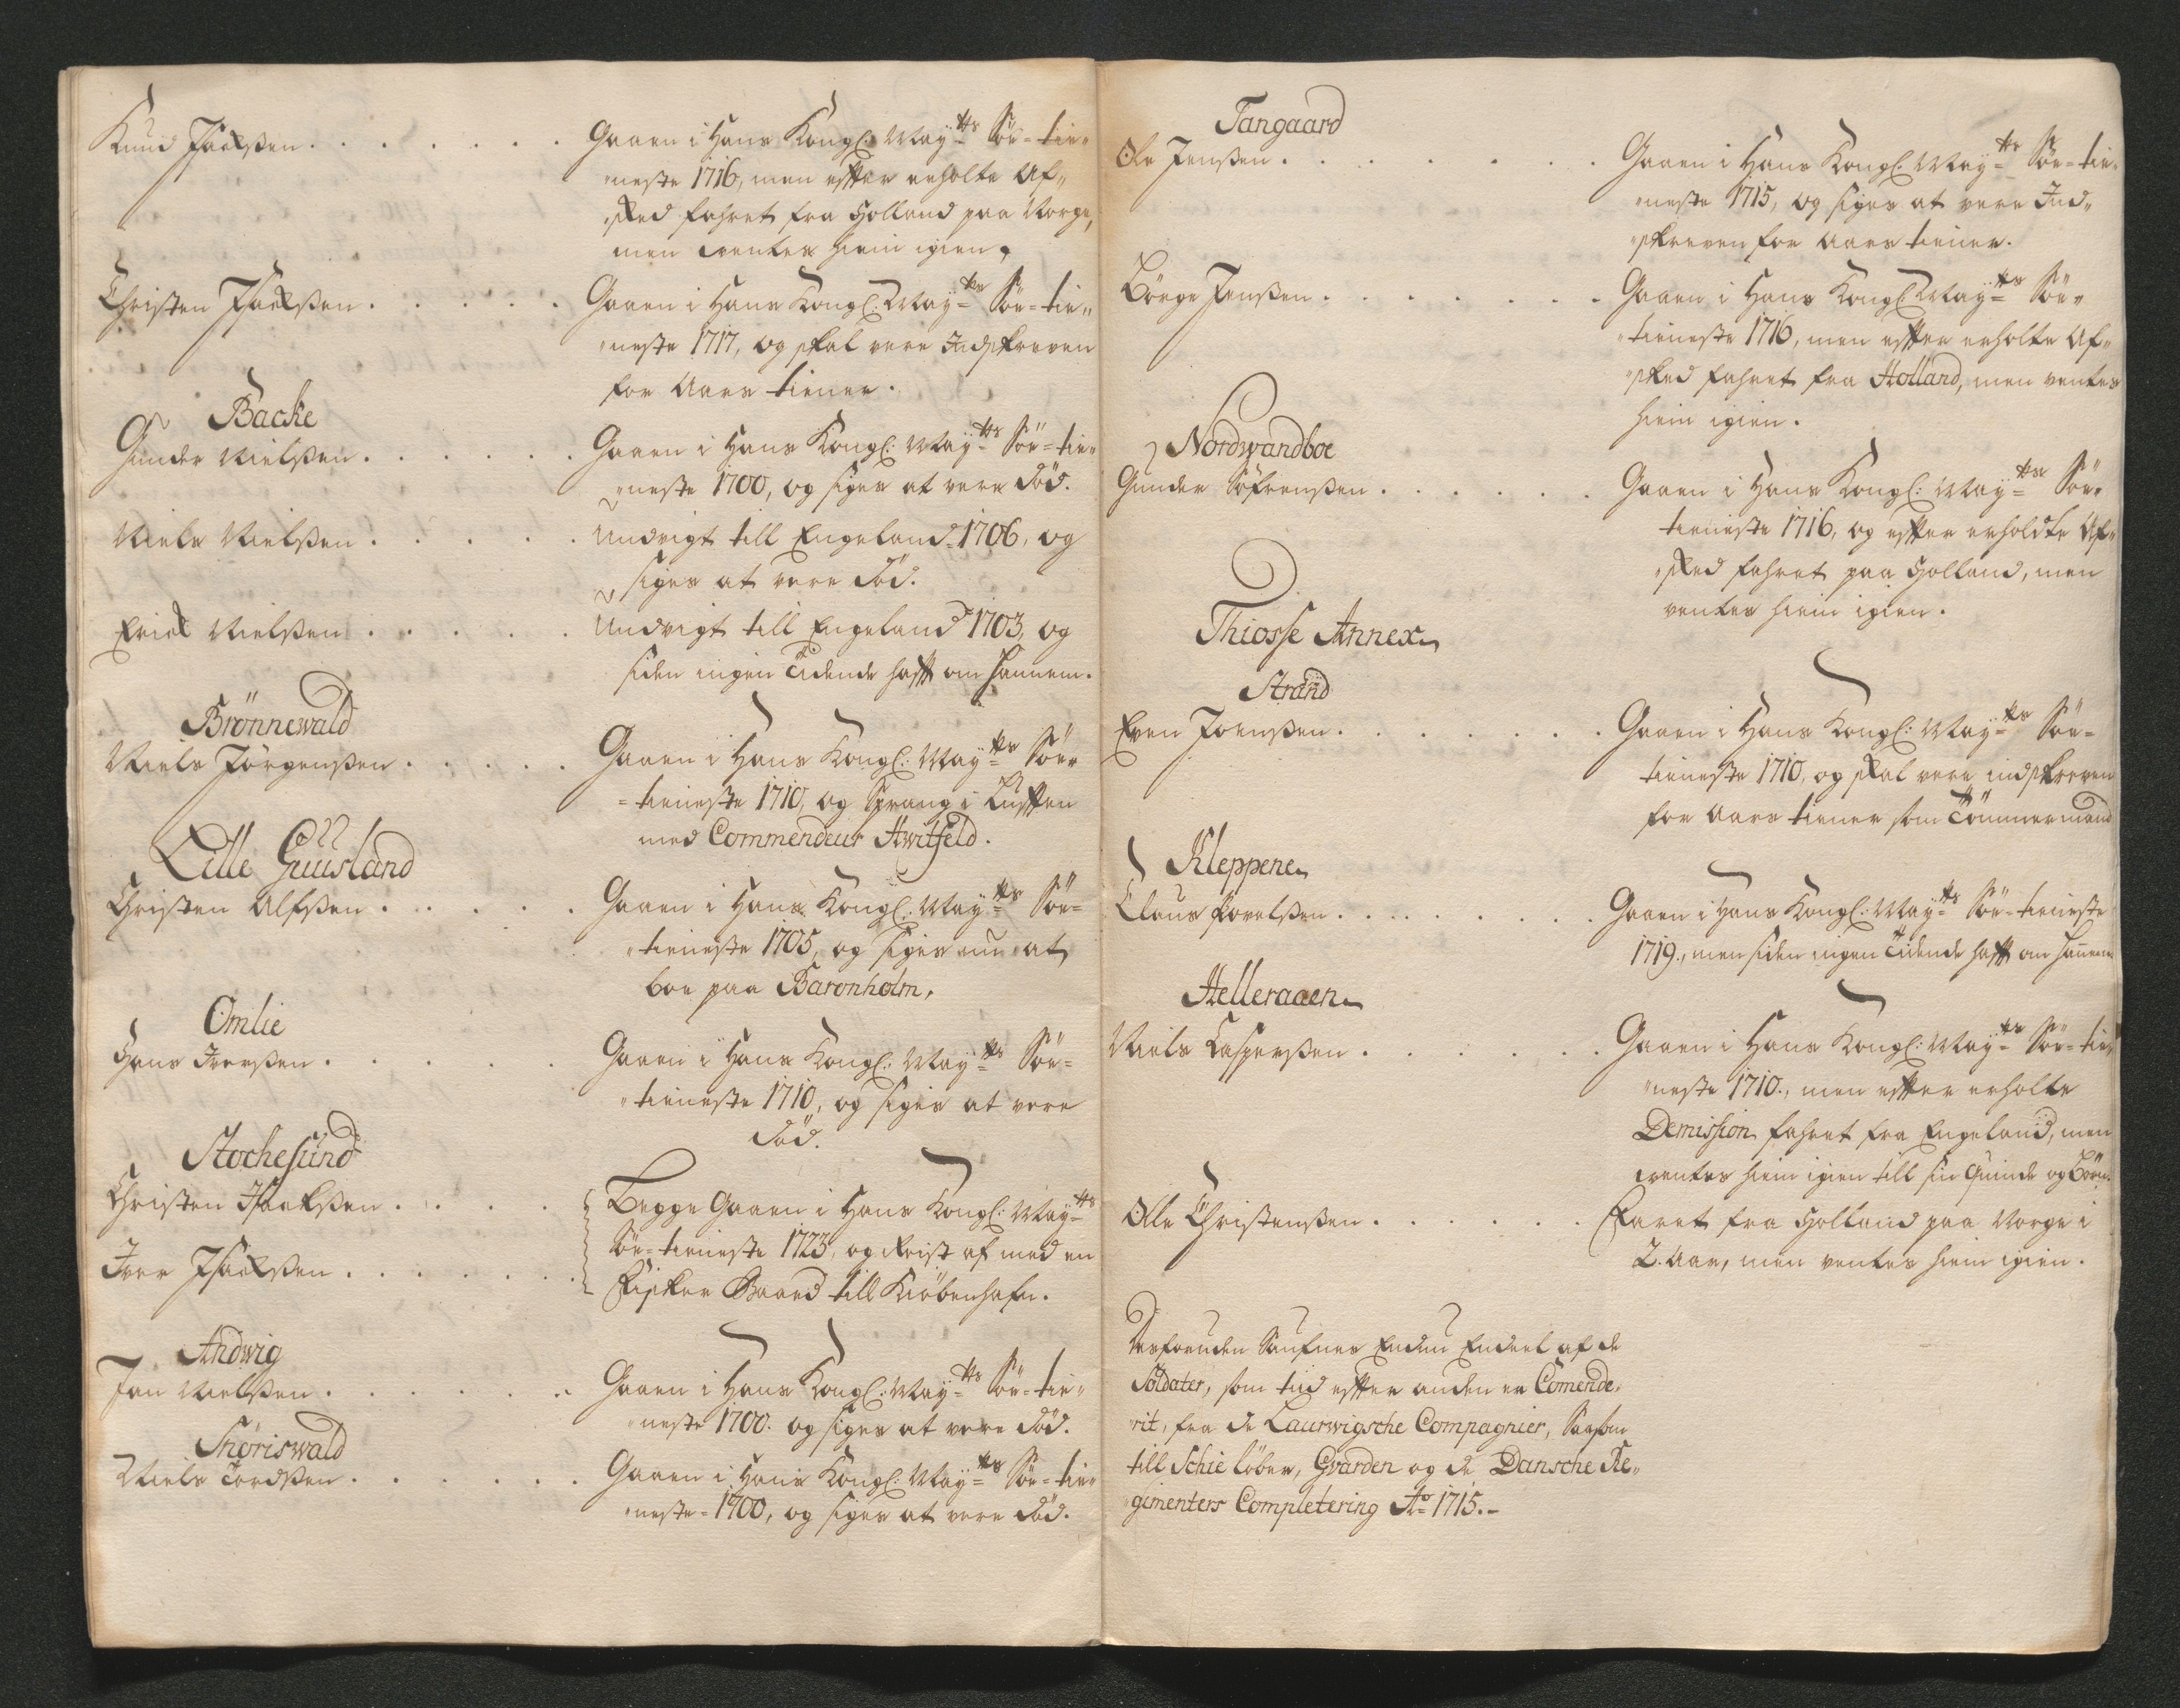 Knud Jsachsen . . . . . . Gaaen i Hans Kongl: May=tts Söe=tie„
„neste 1716, men efter erholte Af„
„sked fahret fra Holland paa Norge,
men ventes hiem igien.
Christen Jsachsen . . . . . Gaaen i Hans Kongl: May=tts Söe=tie„
„neste 1717, og skal vere Indskreven
for Aars tiener.
Backe
Gunder Nielsen . . . . . . Gaaen i Hans Kongl: May=tts Söe=tie„
„neste 1700, og siges at vere död.
Niels Nielsen . . . . . Undvigt till Engeland 1706, og
siges at vere död.
Erich Nielsen . . . . . Undvigt till Engeland 1703, og
siden ingen Tidende hafft om hannem.
Brönnewald
Niels Jörgensen . . . . . Gaaen i Hans Kongl: May=tts Söe„
=tieneste 1710, og Sprang i Lufften
med Commendeur Hwitfeld.
Lille Guusland
Christen Alfsen . . . . . Gaaen i Hans Kongl: May=tts Söe=
„tieneste 1705, og siges nu at
boe paa Baronholm,
Omlie
Hans Iversen . . . . . Gaaen i Hans Kongl: May=tts Söe=
„tieneste 1710, og siges at vere
död.
Stochesund
Christen Isachsen . . . . Begge Gaaen i Hans Kongl: May=tts
Söe=tieneste 1723, og Reist af med en
Iver Jsachsen . . . . . . Fisker Baad till Kiöbenhafn.
Ahdwig
Jan Nielsen . . . . . . Gaaen i Hans Kongl: May=tts Söe=tie„
„neste 1700. og siges at vere död.
Thöriswald
Niels Tordsen . . . . . . Gaaen i Hans Kongl: May=tts Söe=tie„
„neste=1700, og siges at vere död.
Tangaard
Ole Jensen . . . . . . . Gaaen i Hans Kongl: May=tts Söe=tie„
„neste 1715, og siges at vere Ind„
„skreven for Aars tiener.
Börge Jensen . . . . . . . Gaaen i Hans Kongl: May=tts Söe„
„tieneste 1716, men efter erholte Af„
„sked fahret fra Holland, men ventes
hiem igien.
Nordwandboe
Gunder Söfrensen . . . . . . Gaaen i Hans Kongl: May=tts Söe„
tieneste 1716, og efter erholdte Af„
„sked fahret paa Holland, men
ventes hiem igien.
Thiosse Annex
Strand
Even Joensen . . . . . . . Gaaen i Hans Kongl: May=tts Söe=
tieneste 1710, og skal vere indskreven
for Aars tiener som Tömmermand
Kleppene
Claus Povelsen . . . . . . . . Gaaen i Hans Kongl: May=tts Söe=tieneste
1719., men siden ingen Tidende hafft om hannem
Helleraaen
Niels Caspersen . . . . . . . Gaaen i Hans Kongl: May=tts Söe=tie„
„neste 1710., men efter erholte
Demission fahret fra Engeland, men
ventes hiem igien till sin Quinde og Börn.
Olle Christensen . . . . . . . Faret fra Holland paa Norge i
2. Aar, men ventes hiem igien.
Desforuden Saufnes Endnu Endeel af de
Soldater, som tid efter anden er Comende„
„rit, fra de Laurwigsche Compagnier, Saasom
till Schie löber, Gvarden og de Dansche Re„
„gimenters Completering Ao 1715.-